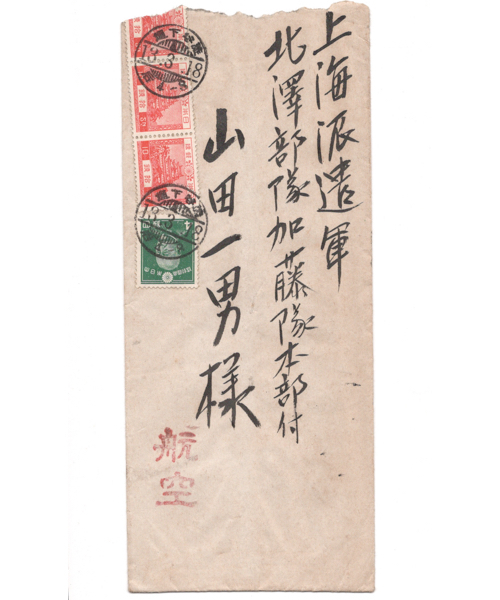 上海派遣軍
北澤部隊加藤隊本部付
山田一男様
航空
13.3.18
10
4